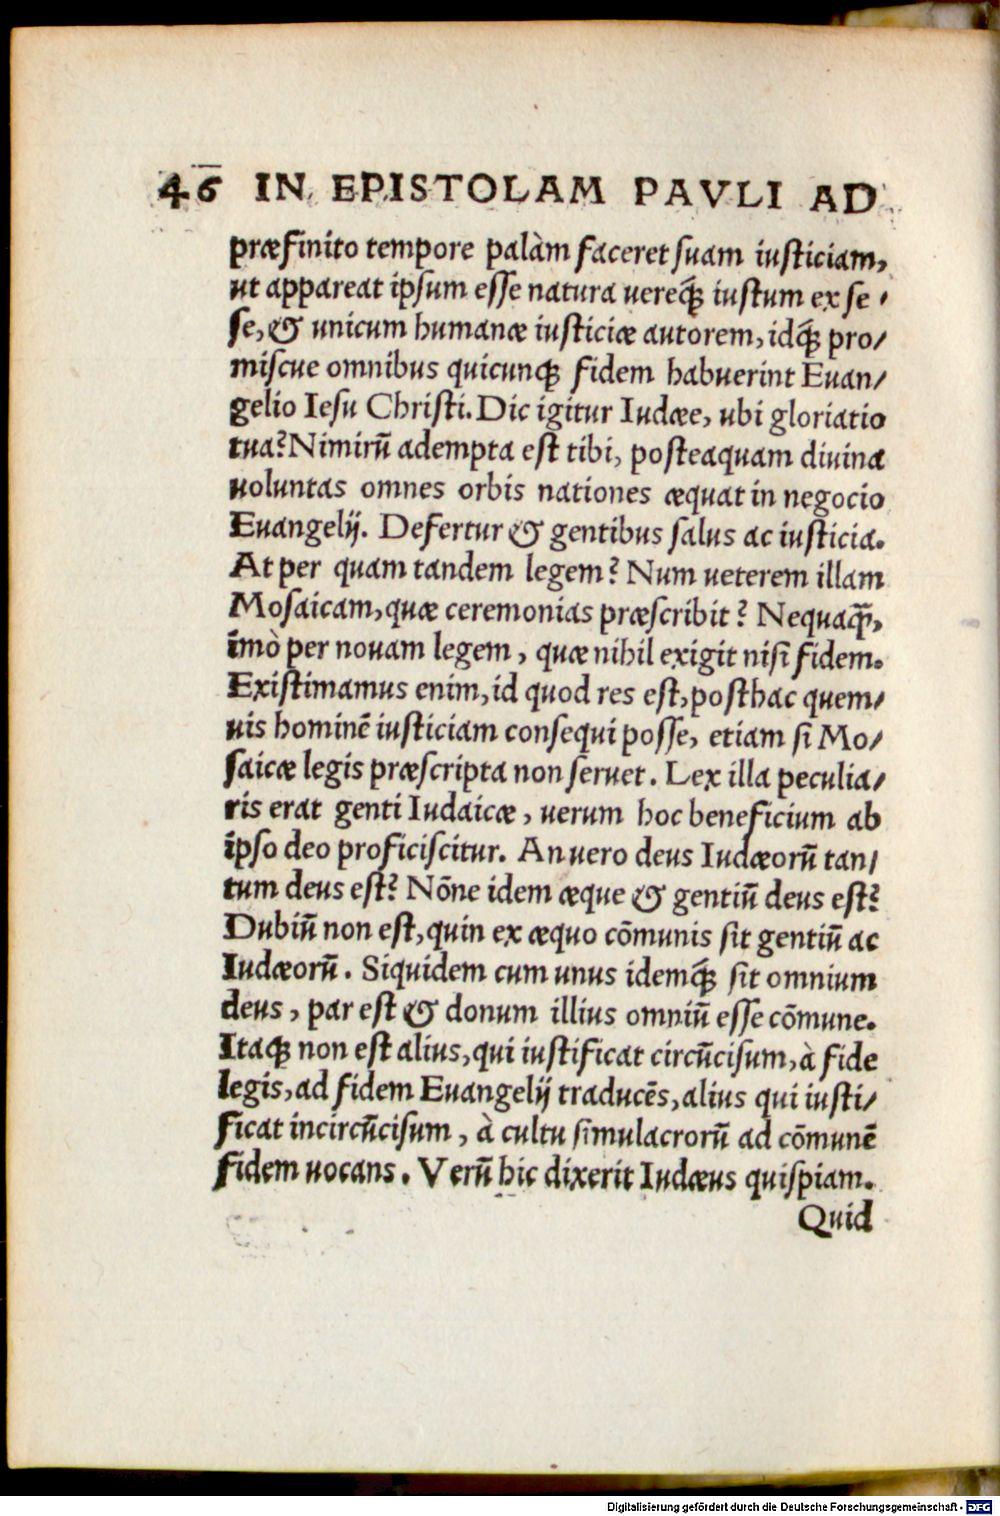 46 IN EPISTOLAM PAVLI AD
præfinito tempore palàm faceret suam iusticiam,
ut appareat ipsum esse natura uereq́; iustum ex se-
se, & unicum humanæ iusticiæ autorem, idq́; pro-
miscue omnibus quicunq; fidem habuerint Euan-
gelio Iesu Christi. Dic igitur Iudæe, ubi gloriatio
tua? Nimirũ adempta est tibi, posteaquam diuina
uoluntas omnes orbis nationes æquat in negocio
Euangelij. Defertur & gentibus salus ac iusticia.
At per quam tandem legem? Num ueterem illam
Mosaicam, quæ ceremonias præscribit? Nequaq̃;,
ĩmò per nouam legem, quæ nihil exigit nisi fidem.
Existimamus enim, id quod res est, posthac quem-
uis hominẽ iusticiam consequi posse, etiam si Mo-
saicæ legis præscripta non seruet. Lex illa peculia-
ris erat genti Iudaicæ, uerum hoc beneficium ab
ipso deo proficiscitur. An uero deus Iudæorũ tan-
tum deus est? Nõne idem æque & gentiũ deus est?
Dubiũ non est, quin ex æquo cõmunis sit gentiũ ac
Iudæorũ. Siquidem cum unus idemq́; sit omnium
deus, par est & donum illius omniũ esse cõmune.
Itaq; non est alius, qui iustificat circũcisum, à fide
legis, ad fidem Euangelij traducẽs, alius qui iusti-
ficat incircũcisum, à cultu simulacrorũ ad cõmunẽ
fidem uocans. Verũ hic dixerit Iudæus quispiam.
Quid
Digitalisierung gefördert durch die Deutsche Forschungsgemeinschaft - DFG